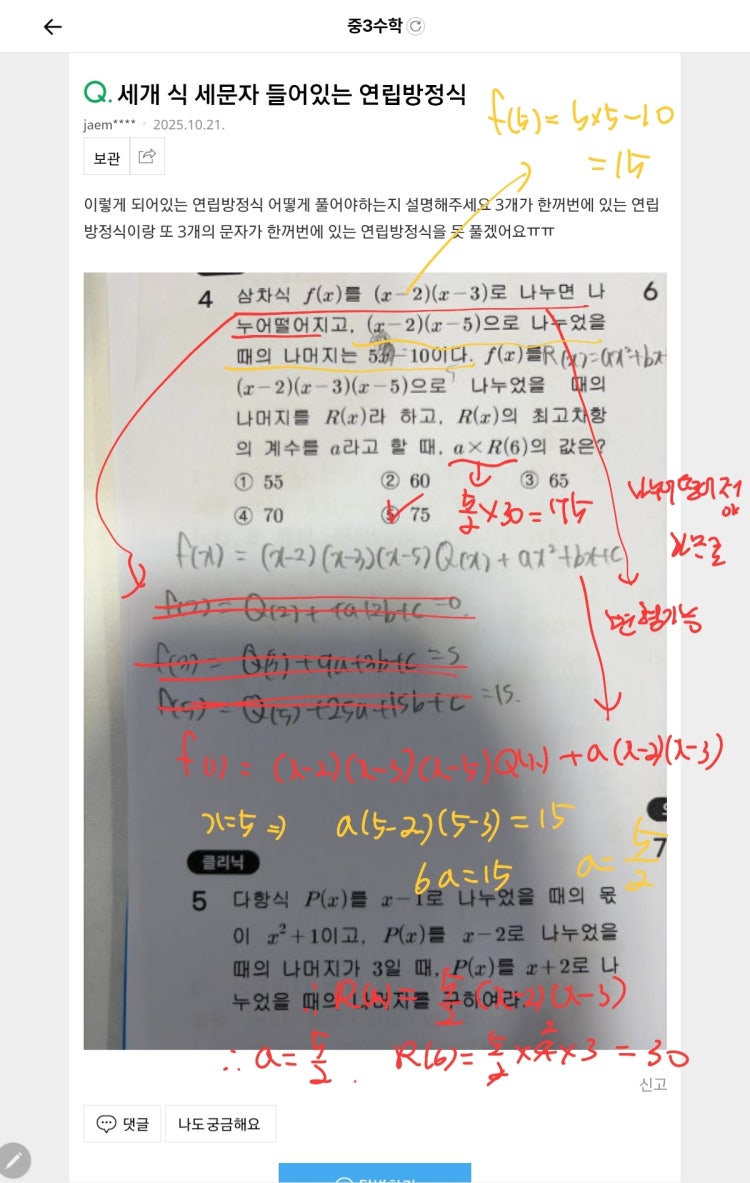 중3수학
Q. 세개 식 세문자 들어있는 연립방정식
jaem**** · 2025.10.21.
보관
f(5)= 5×5-10
=15
이렇게 되어있는 연립방정식 어떻게 풀어야하는지 설명해주세요 3개가 한꺼번에 있는 연립
방정식이랑 또 3개의 문자가 한꺼번에 있는 연립방정식을 못 풀겠어요ㅠㅠ
4 삼차식 f(x)를 (x-2)(x-3)로 나누면 나
6
누어떨어지고, (x-2)(x-5)으로 나누었을
때의 나머지는 5x-10이다. f(x)를
R(x)=ax²+bx
(x-2)(x-3)(x-5)으로 나누었을 때의
나머지를 R(x)라 하고, R(x)의 최고차항
의 계수를 a라고 할 때, a×R(6)의 값은?
① 55 ② 60 ③ 65
④ 70 ⑤ 75
5/2 ×30=75
나누어떨어져야
변형가능
f(x) = (x-2)(x-3)(x-5)Q(x)+ax²+bx+c
f(2) = Q(2)+4a+2b+c=0
f(3) = Q(3)+9a+3b+c=5
f(5) = Q(5)+25a+15b+c=15.
f(x) = (x-2)(x-3)(x-5)Q(x)+a(x-2)(x-3)
x=5 ⇒ a(5-2)(5-3)=15
6a=15 a=5/2
7
클리닉
5 다항식 P(x)를 x-1로 나누었을 때의 몫
이 x²+1이고, P(x)를 x-2로 나누었을
때의 나머지가 3일 때, P(x)를 x+2로 나
누었을 때의 나머지를 구하여라.
∴ R(x)= 5/2 (x-2)(x-3)
∴ a= 5/2. R(6)= 5/2 ×4×3 =30
2
신고
댓글
나도 궁금해요
답변하기